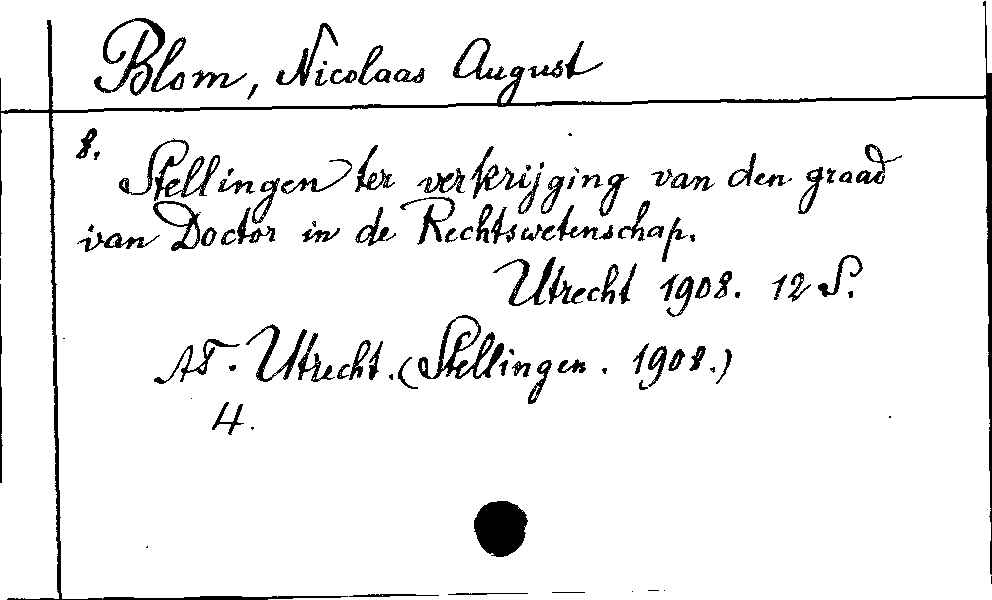 Blom, Nicolaas August
8.
Stellingen ter verkrijging van den graad
van Doctor in de Rechtswetenschap.
Utrecht 1908. 12 S.
AT. Utrecht. (Stellingen. 1908.)
4.